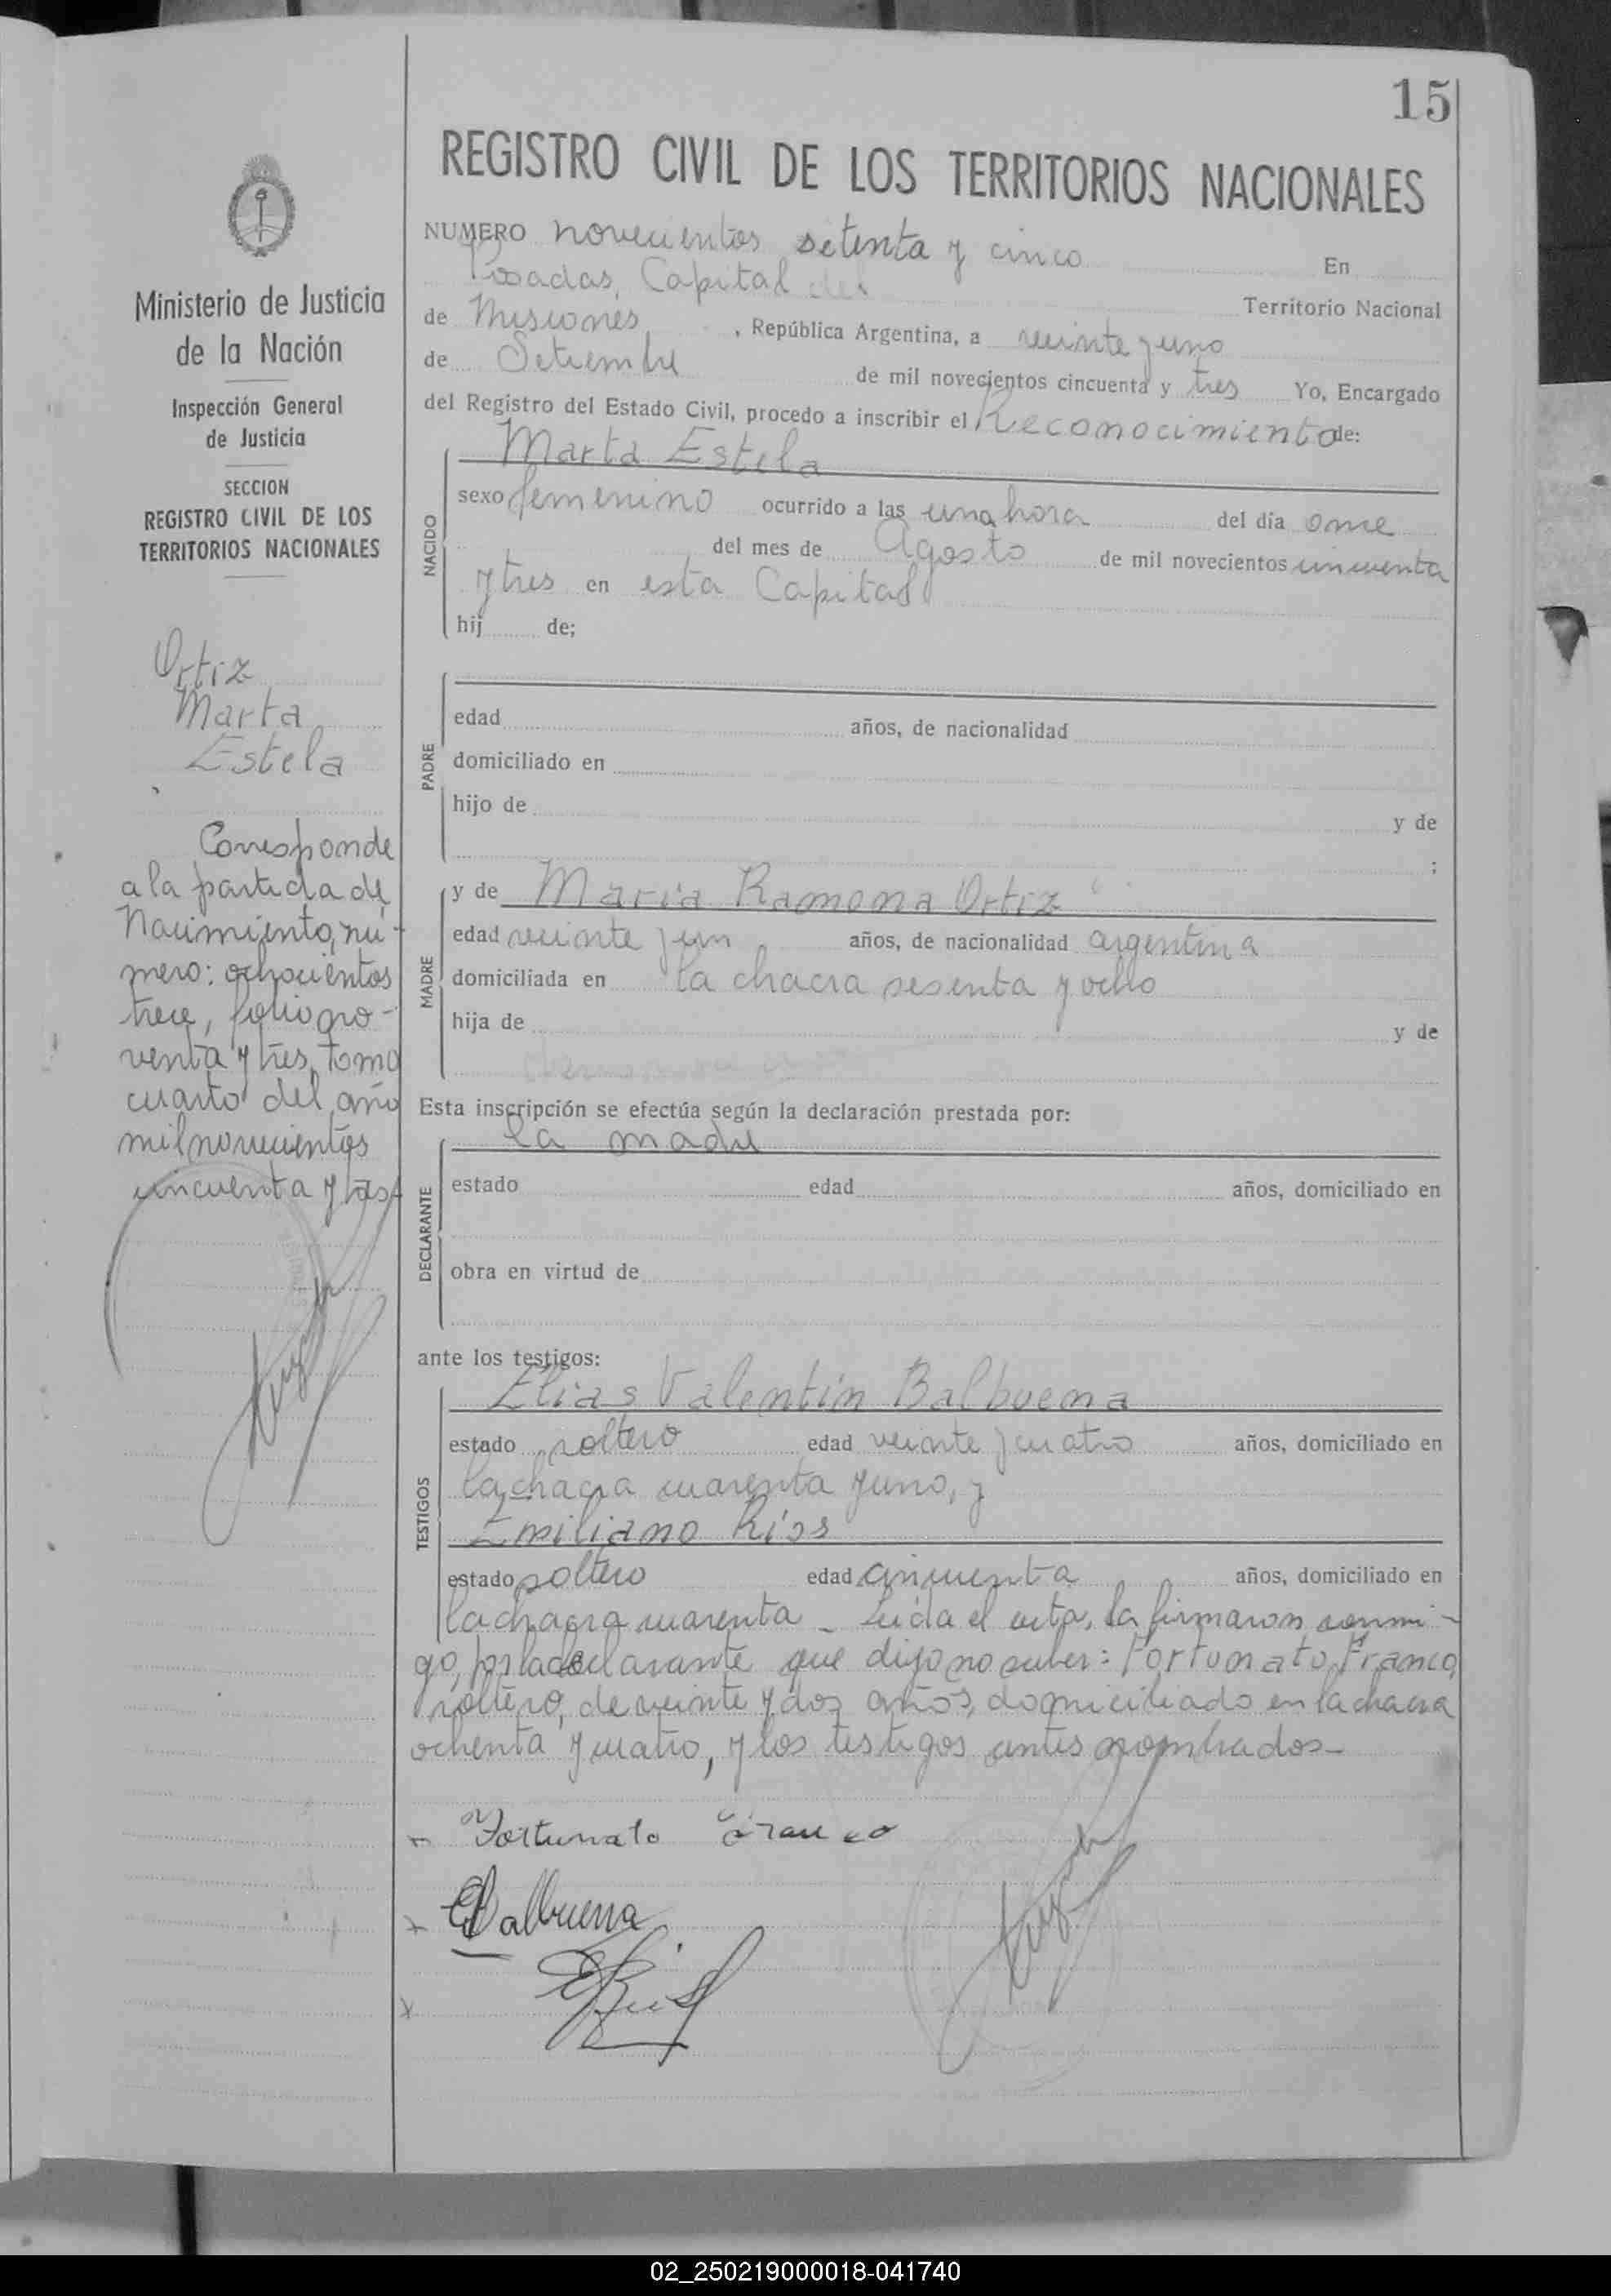 15
REGISTRO CIVIL DE LOS TERRITORIOS NACIONALES
Ministerio de Justicia
de la Nación
Inspección General
de Justicia
SECCION
REGISTRO CIVIL DE LOS
TERRITORIOS NACIONALES
Ortiz
Marta
Estela
Corresponde
a la partida de
Nacimiento, nú-
mero: ochocientos
trece, folio no-
venta y tres, tomo
cuarto del año
mil novecientos
cincuenta y tres
NUMERO novecientos setenta y cinco En
Posadas, Capital del Territorio Nacional
de Misiones, República Argentina, a veinte y uno
de Setiembre de mil novecientos cincuenta y tres Yo, Encargado
del Registro del Estado Civil, procedo a inscribir el Reconocimiento de:
NACIDO
Marta Estela
sexo femenino ocurrido a las una hora del día once
del mes de Agosto de mil novecientos cincuenta
y tres en esta Capital
hij de;
PADRE
edad años, de nacionalidad
domiciliado en
hijo de y de
;
MADRE
y de María Ramona Ortiz
edad veinte y un años, de nacionalidad argentina
domiciliada en la chacra sesenta y ocho
hija de y de
Esta inscripción se efectúa según la declaración prestada por:
DECLARANTE
la madre
estado edad años, domiciliado en
obra en virtud de
ante los testigos:
TESTIGOS
Elias Valentín Balbuena
estado soltero edad veinte y cuatro años, domiciliado en
la chacra cuarenta y uno, y
Emiliano Ríos
estado soltero edad cincuenta años, domiciliado en
la chacra cuarenta - Leída el acta, la firmaron conmi-
go, por la declarante que dijo no saber: Fortunato Franco,
soltero, de veinte y dos años, domiciliado en la chacra
ochenta y cuatro, y los testigos antes nombrados-
Fortunato Franco
EBalbuena
ERios
02_250219000018-041740